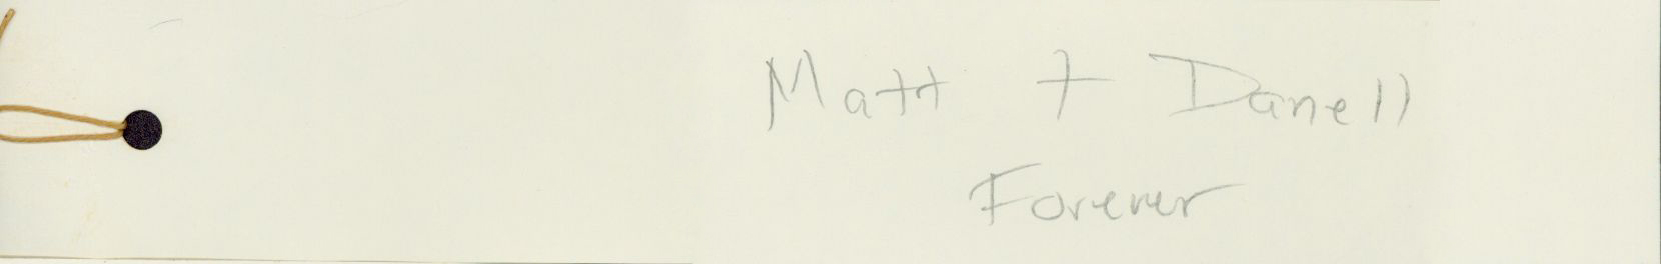 Matt + Danell
Forever